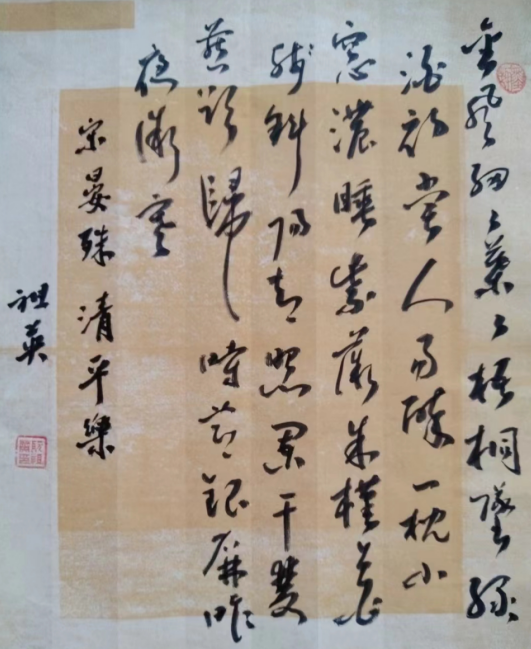 金風細〻葉〻梧桐墜綠
酒初嘗人易醉一枕小
窓濃睡紫薇朱槿花
殘斜陽却照闌干雙
燕欲歸時節銀屏昨
夜微寒
宋晏殊 清平樂
祖英